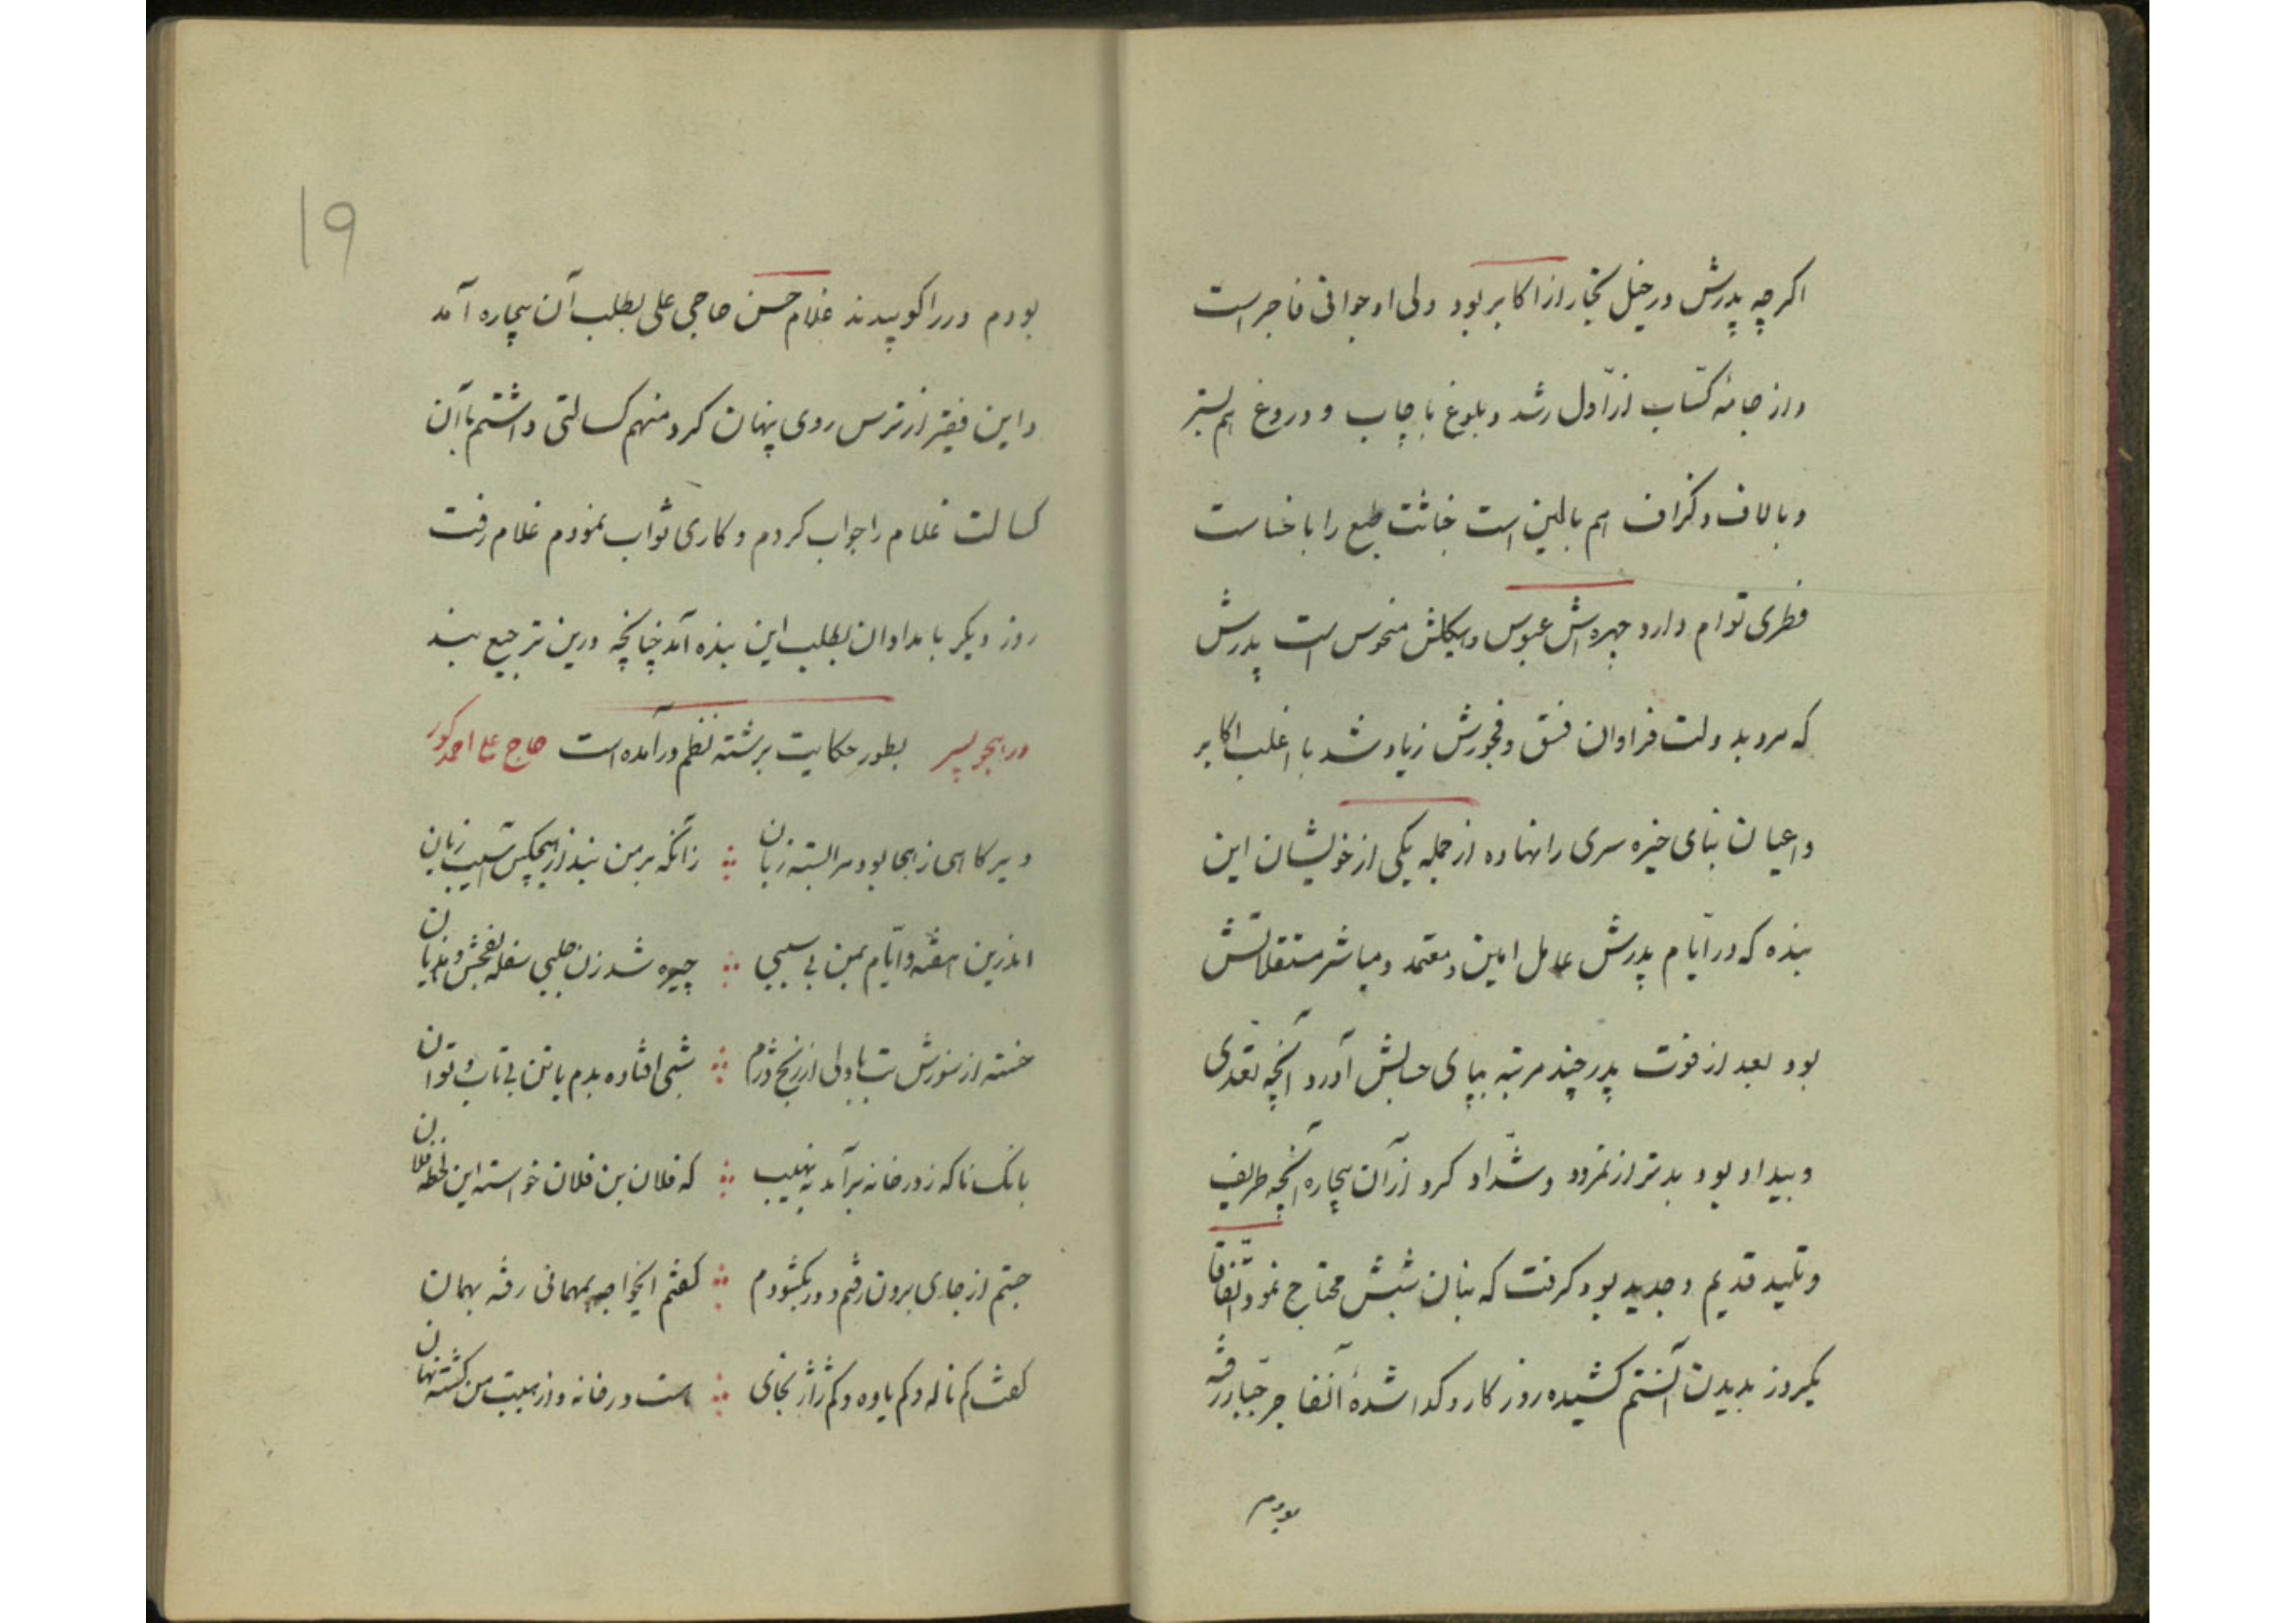 اگرچه پدرش در خیل تجار از اکابر بود ولی او جوانی فاجر است
و از جامهٔ کتّاب از اوّل رشد و بلوغ با چاپ و دروغ هم بستر
و با لاف و گزاف هم بالین است خباثت طبع را با خساست
فطری توام دارد چهره‌اش عبوس و هیکلش منحوس است پدرش
که مرد بدولت فراوان فسق و فجورش زیاد شد با اغلب اکابر
و اعیان بنای خیره سری را نهاده از جمله یکی از خویشان این
بنده که در ایّام پدرش عامل امین و معتمد و مباشر مستقلاتش
بود بعد از فوت پدر چند مرتبه بپای حسابش آورد آنچه تعدّی
و بیداد بود بدتر از نمرود و شدّاد کرد از آن بیچاره آنچه طریف
و تلید قدیم و جدید بود گرفت که بنان شبش محتاج نمود اتّفاقاً
یکروز بدیدن آن ستم کشیده روزکار و گدا شدهٔ آنفاجر جبّار رفته
بودم
19
بودم در را کوبیدند غلام حسن حاجی علی بطلب آن بیچاره آمد
و این فقیر از ترس روی پنهان کرد منهم کسالتی داشتم با آن
کسالت غلام را جواب کردم و کاری ثواب نمودم غلام رفت
روز دیگر بامدادان بطلب این بنده آمد چنانچه درین ترجیع بند
در هجو پسر بطور حکایت برشته نظم در آمده است حاج علی احمد کور
دیر کاهی ز هجا بود مرا بسته زبان ؞ زانکه بر من نبد از هیچکس آسیب زیان
اندرین هفته و ایّام بمن بی سببی ؞ چیره شد زن جلبی سفله بفحش و هذیان
خسته از سوزش تب با دلی از رنج دژم ؞ شبی افتاده بدم با تن بی تاب و توان
بانک ناکه ز در خانه برآمد به نهیب ؞ که فلان بن فلان خواسته این لحظه فلان
جستم از جای برون رفتم و در بکشودم ؞ کفتم اینخواجه بمهمانی رفته بهمان
کفت کم ناله و کم یاوه و کم ژاژ بخای ؞ هست در خانه و از هیبت من کشته نهان